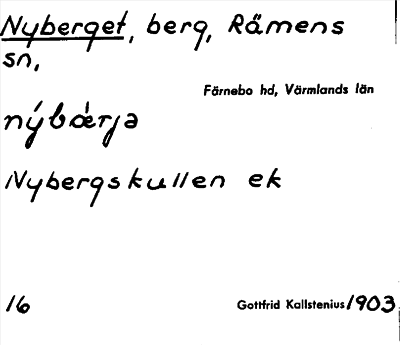 Nyberget, berg, Rämens
sn,
Färnebo hd, Värmlands län
nýbær̨jə
Nybergskullen ek
16 Gottfrid Kallstenius 1903